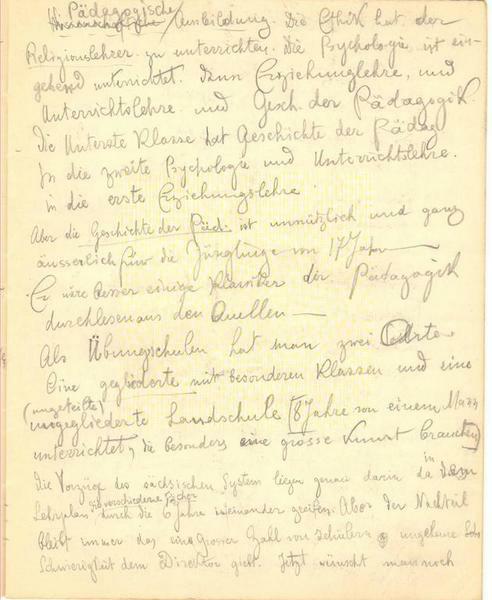 II. Pädagogische
Ausbildung. Die Ethik hat der
Religionslehrer zu unterrichten. Die Psychologie ist ein-
gehend unterrichtet. Dann Erziehunglehre, und
Unterrichtslehre und Gesch. der Pädagogik.
Die Unterste Klasse hat Geschichte der Pädag
In die zweite Psychologie und Unterrichtslehre.
in die erste Erziehungslehre.
Aber die Geschichte der Päd. ist unnützlich und ganz
äusserlich für die Jünglinge von 17 Jahr —
Er wäre besser einige Klassiker der Pädagogik
durchlesen aus den Quellen —
Als Übungschulen hat man zwei Arte
Eine gegliederte mit besonderen Klassen und eine
(ungeteilte)
ungegliederte Landschule (8 Jahre von einem Mann
unterrichtet, die besonders eine grosse Kunst brauchen)
Die Vorzüge des sächsischen System liegen genau darin da im
Lehrplan die verschiedene Fächer durch die 6 Jahre ineinander greifen. Aber der Nachteil
bleibt immer das eine grosser Zahl von Schülern ungeheure
Schwerigkeit dem Direktor giebt. Jetzt wünscht man noch